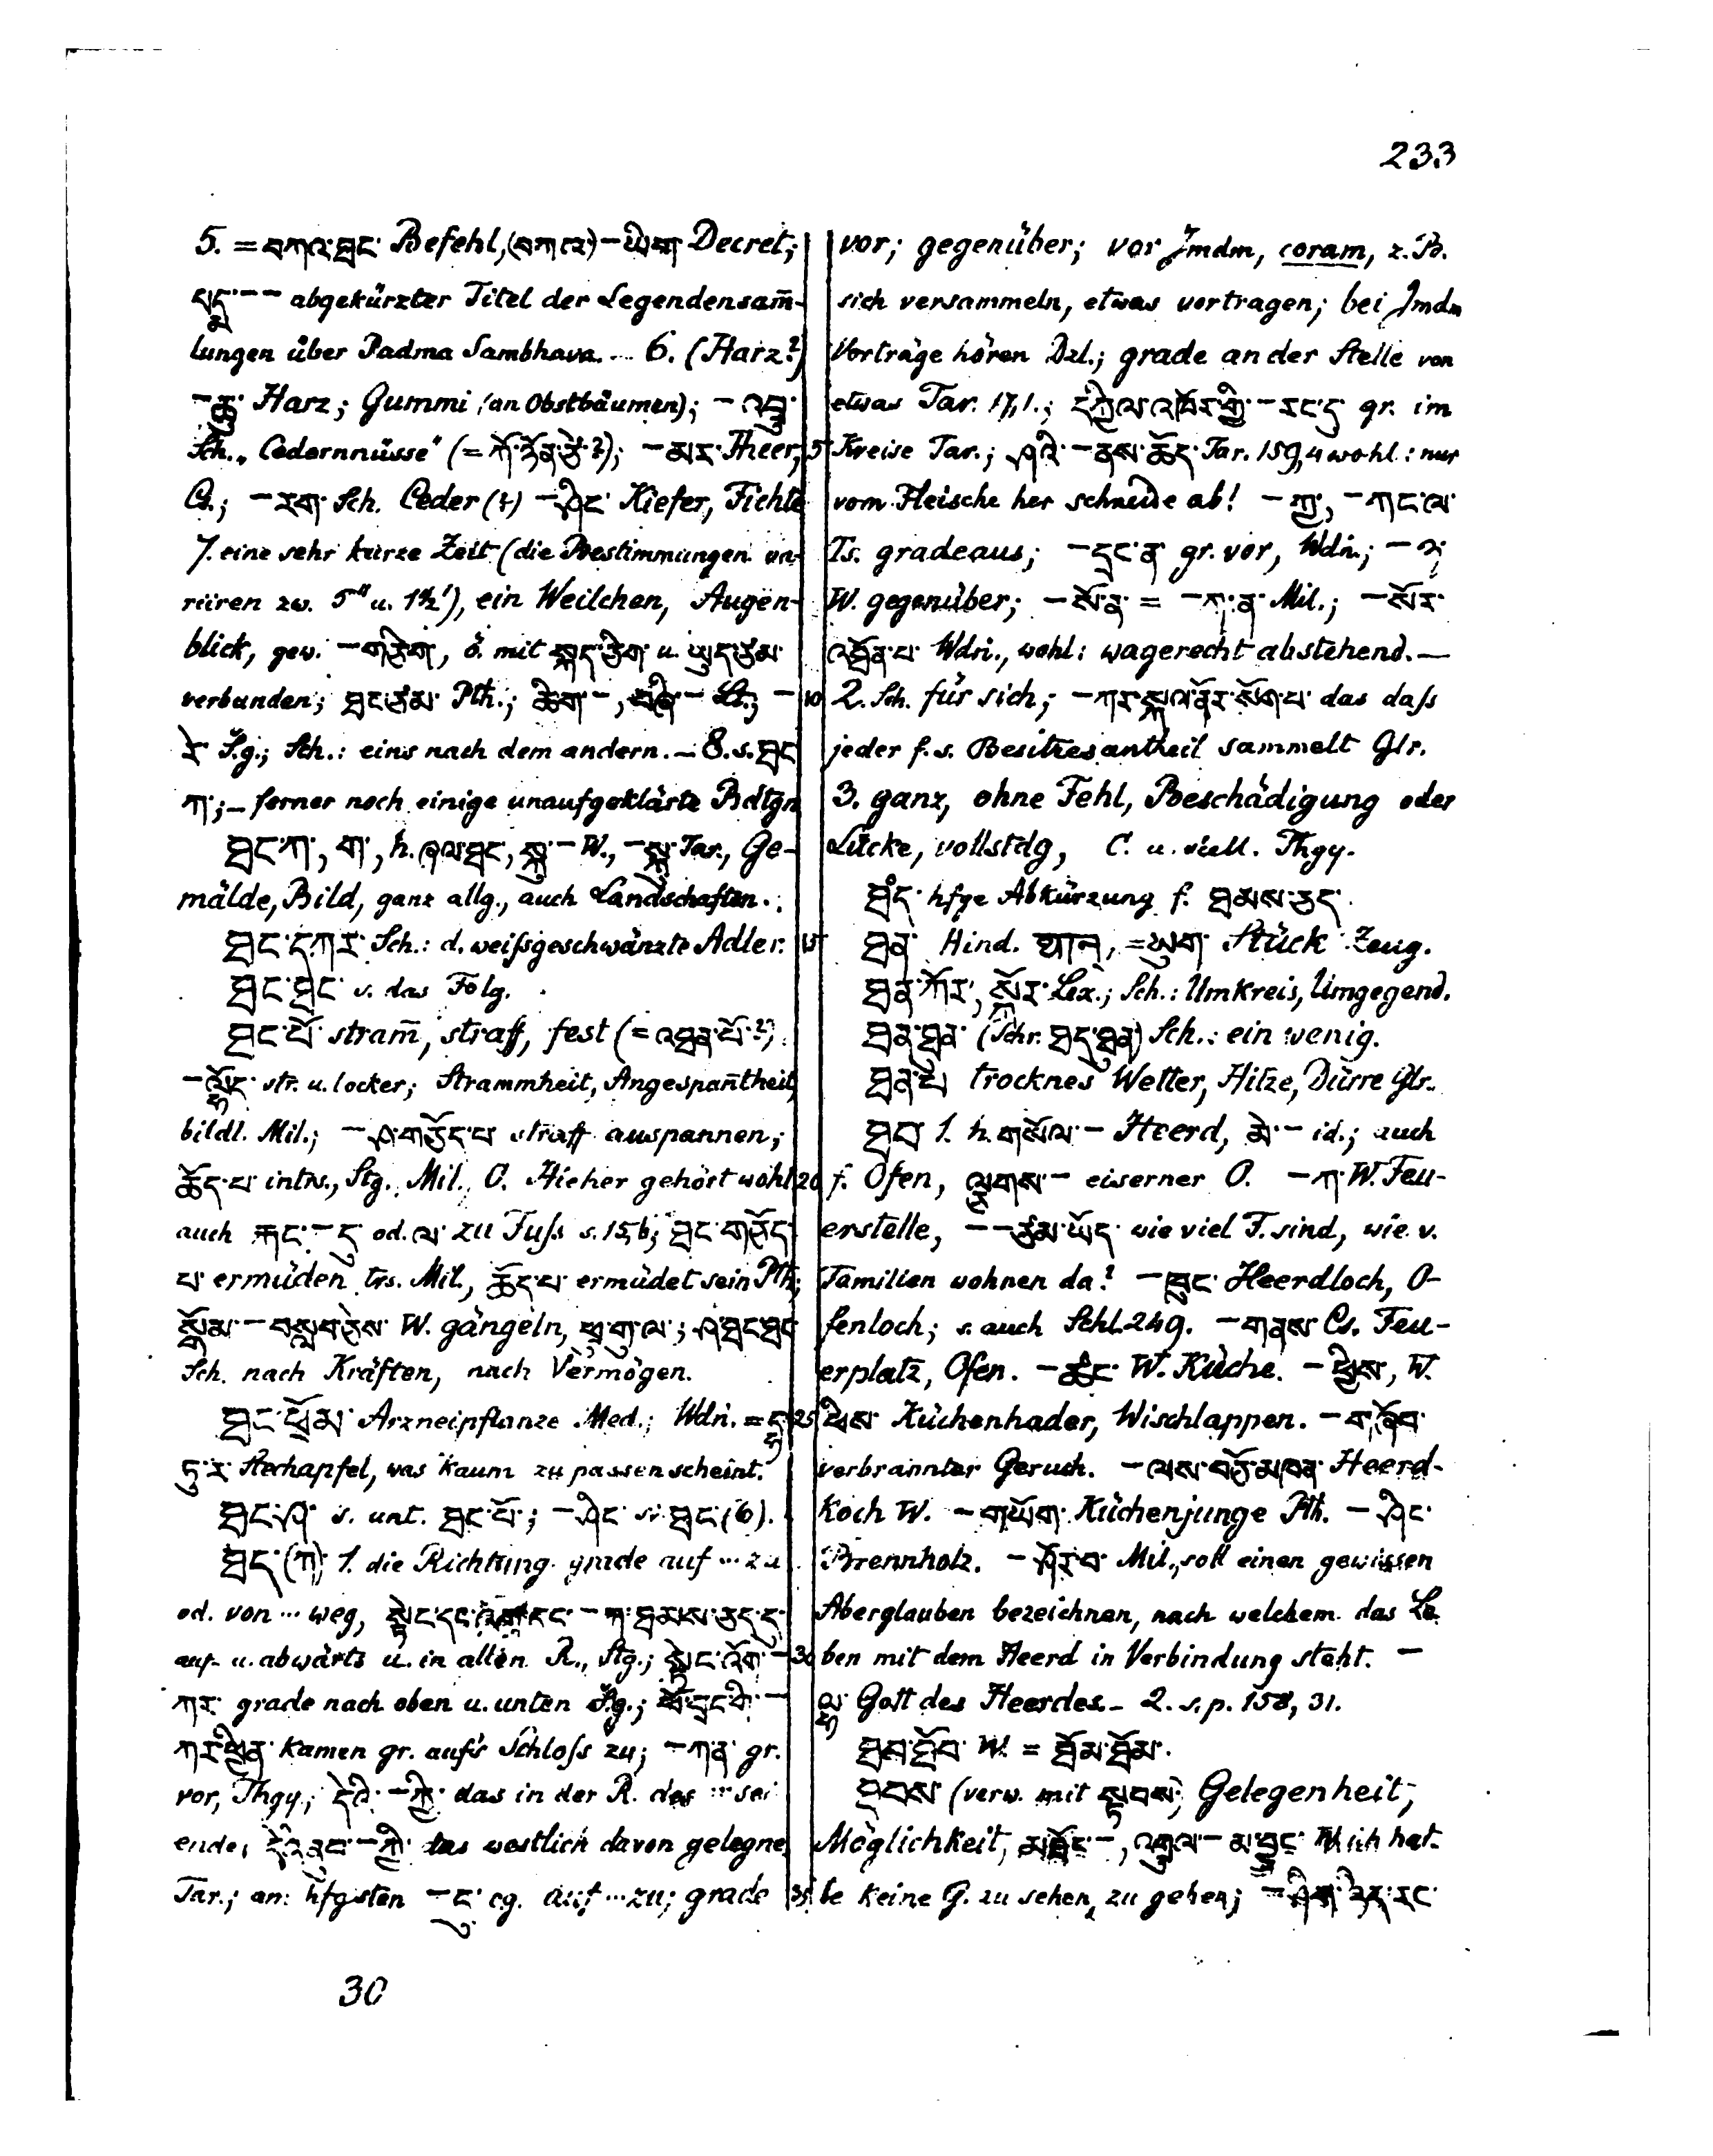 233
5. = བཀའ་ཐང་ Befehl, (བཀའ) – ཡིག་ Decret;
པདྨ་ – – abgekürzter Titel der Legendensam̄-
lungen über Padma Sambhava. … 6. (Harz?)
– ཆུ་ Harz; Gummi (an Obstbäumen); – འབྲུ་
Sch. „Cedernnüsse" (= ཀོ་ཉོན་ཙེ་?); – མར་ Theer,
Cs.; – རག་ Sch. Ceder (?) – ཤིང་ Kiefer, Fichte
7. eine sehr kurze Zeit (die Bestimmungen va-
riiren zw. 5" u. 1½'), ein Weilchen, Augen-
blick, gew. – གཅིག་, ö. mit སྐད་ཅིག་ u. ཡུད་ཙམ་
verbunden; ཐང་ཙམ་ Pth.; ཚིག་ –, –
རེ་ S.g.; Sch.: eins nach dem andern. – 8. s. ཐང
ཀ་; – ferner noch einige unaufgeklärte Bdtgn
ཐང་ཀ་, ག་, h. ཞལ་ཐང་, སྐུ་ – W., – སྐུ་ Tar., Ge-
mälde, Bild, ganz allg., auch Landschaften.
ཐང་དཀར་ Sch.: d. weißgeschwänzte Adler.
ཐང་ཐང་ s. das Folg.
ཐང་པོ་ stram̄, straff, fest (= འཐན་པོ་?),
– ལྷོད་ str. u. locker; Strammheit, Angespan̄theit,
bildl. Mil.; – ཤ་གཅོད་པ་ straff auspannen;
ཆོད་པ་ intrs., Stg. Mil. C. Hieher gehört wohl
auch རྐང་ – དུ་ od. ལ་ zu Fuß s. 15,b; ཐང་གཅོད་
པ་ ermüden trs. Mil., ཆོད་པ་ ermüdet sein Pth;
སྒོམ་ – བསླབ་ཅེས་ W. gängeln, ཕྲུ་གུ་ལ་; ཤ་ཐང་ཐང
Sch. nach Kräften, nach Vermögen.
ཐང་ཕྲོམ་ Arzneipflanze Med.; Wdn̄. = དྷ་
ཏུ་ར་ Stechapfel, was kaum zu passen scheint.
ཐང་ཤ་ s. unt. ཐང་པོ་; – ཤིང་ s. ཐང་ (6).
ཐད་ (ཀ) 1. die Richtung grade auf … zu
od. von … weg, སྟེང་དང་ – ཀ་ཐམས་ཅད་དུ་
auf- u. abwärts u. in allen R., Stg.; སྟེང་འོག་ –
ཀར་ grade nach oben u. unten S.g.; ཕོ་བྲང་གི་ –
ཀར་ཕྱིན་ kamen gr. aufs Schloß zu; – ཀན་ gr.
vor, Thgy.; དེའི་ – ཀྱི་ das in der R. des … sei
ende, དེའི་ནུབ་ – ཀྱི་ das westlich davon gelegne
Tar.; am hfgsten – དུ་ cg. auf … zu; grade
vor; gegenüber; vor Jmdm, coram, z. B.
sich versammeln, etwas vortragen; bei Jmdm
Vorträge hören Dzl.; grade an der Stelle von
etwas Tar. 17,1.; དཀྱིལ་འཁོར་གྱི་ – རང་དུ་ gr. im
5 Kreise Tar.; ཤའི་ – ནས་ཆོད་ Tar. 159,4 wohl: nur
vom Fleische her schneide ab! – ཀྱ་, – ཀང་ལ་
Ts. gradeaus; – དྲང་ན་ gr. vor, Wdn̄.; – ད་
W. gegenüber; – སོ་ན་ = – ཀ་ན་ Mil.; – སོར་
འཐོན་པ་ Wdn̄., wohl: wagerecht abstehend. –
10 2. Sch. für sich; – ཀར་སྐལ་ནོར་སོག་པ་ das daß
jeder f. s. Besitzesantheil sammelt Glr.
3. ganz, ohne Fehl, Beschädigung oder
Lücke, vollstdg, C. u. viell. Thgy.
ཐཾད་ hfge Abkürzung f. ཐམས་ཅད་.
15 ཐན་ Hind. थान्, = ཡུག་ Stück Zeug.
ཐན་ཀོར་, སྐོར་ Lex.; Sch.: Umkreis, Umgegend.
ཐན་ཐན་ (Schr. ཐད་ཐན) Sch.: ein wenig.
ཐན་པ་ trocknes Wetter, Hitze, Dürre Glr.
ཐབ་ 1. h. གསོལ་ – Heerd, མེ་ – id.; auch
20 f. Ofen, ལྕགས་ – eiserner O. – ཀ་ W. Feu-
erstelle, – – ཙམ་ཡོད་ wie viel F. sind, wie v.
Familien wohnen da? – ཁུང་ Heerdloch, O-
fenloch; s. auch Schl. 249. – གནས་ Cs. Feu-
erplatz, Ofen. – ཚང་ W. Küche. – ཕྱིས་, W.
25 ཕིས་ Küchenhader, Wischlappen. – བ་ཞོབ་
verbrannter Geruch. – ལས་བཅོ་མཁན་ Heerd-
koch W. – གཡོག་ Küchenjunge Pth. – ཤིང་
Brennholz. – ཤོར་བ་ Mil., soll einen gewissen
Aberglauben bezeichnen, nach welchem das Le
30 ben mit dem Heerd in Verbindung steht. –
ལྷ་ Gott des Heerdes. – 2. s. p. 158, 31.
ཐབ་ཐོབ་ W. = ཐོམ་ཐོམ་.
ཐབས་ (verw. mit སྟབས), Gelegenheit,
Möglichkeit, མཐོང་ –, འགྲུལ་ – མ་བྱུང་ W. ich hat-
35 te keine G. zu sehen, zu gehen;
30